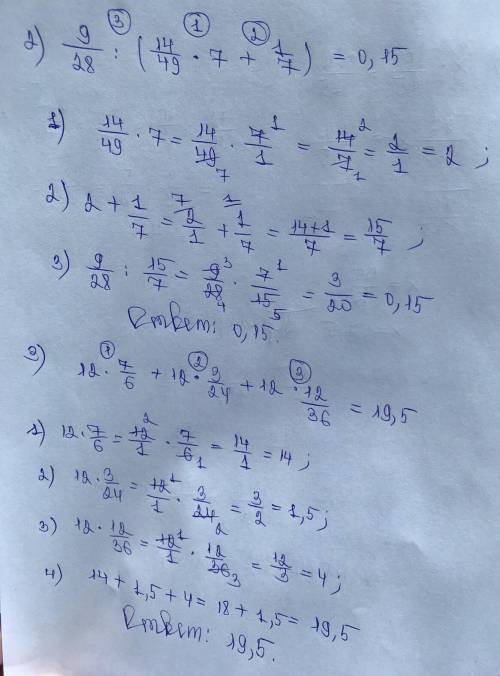 ③ ① ②
2) 9/28 : (14/49 · 7 + 1/7) = 0,15
1) 14/49 · 7 = 14/49 7 · 7/1 1 = 14/7 2 1 = 2/1 = 2 ;
2) 2 + 1/7 = 7 2/1 + 1 1/7 = 14+1/7 = 15/7 ;
3) 9/28 : 15/7 = 9/28 3 4 · 7/15 1 5 = 3/20 = 0,15
Ответ: 0,15.
① ② ③
3) 12 · 7/6 + 12 · 3/24 + 12 · 12/36 = 19,5
1) 12 · 7/6 = 12/1 2 · 7/6 1 = 14/1 = 14 ;
2) 12 · 3/24 = 12/1 1 · 3/24 2 = 3/2 = 1,5 ;
3) 12 · 12/36 = 12/1 1 · 12/36 3 = 12/3 = 4 ;
4) 14 + 1,5 + 4 = 18 + 1,5 = 19,5
Ответ: 19,5.